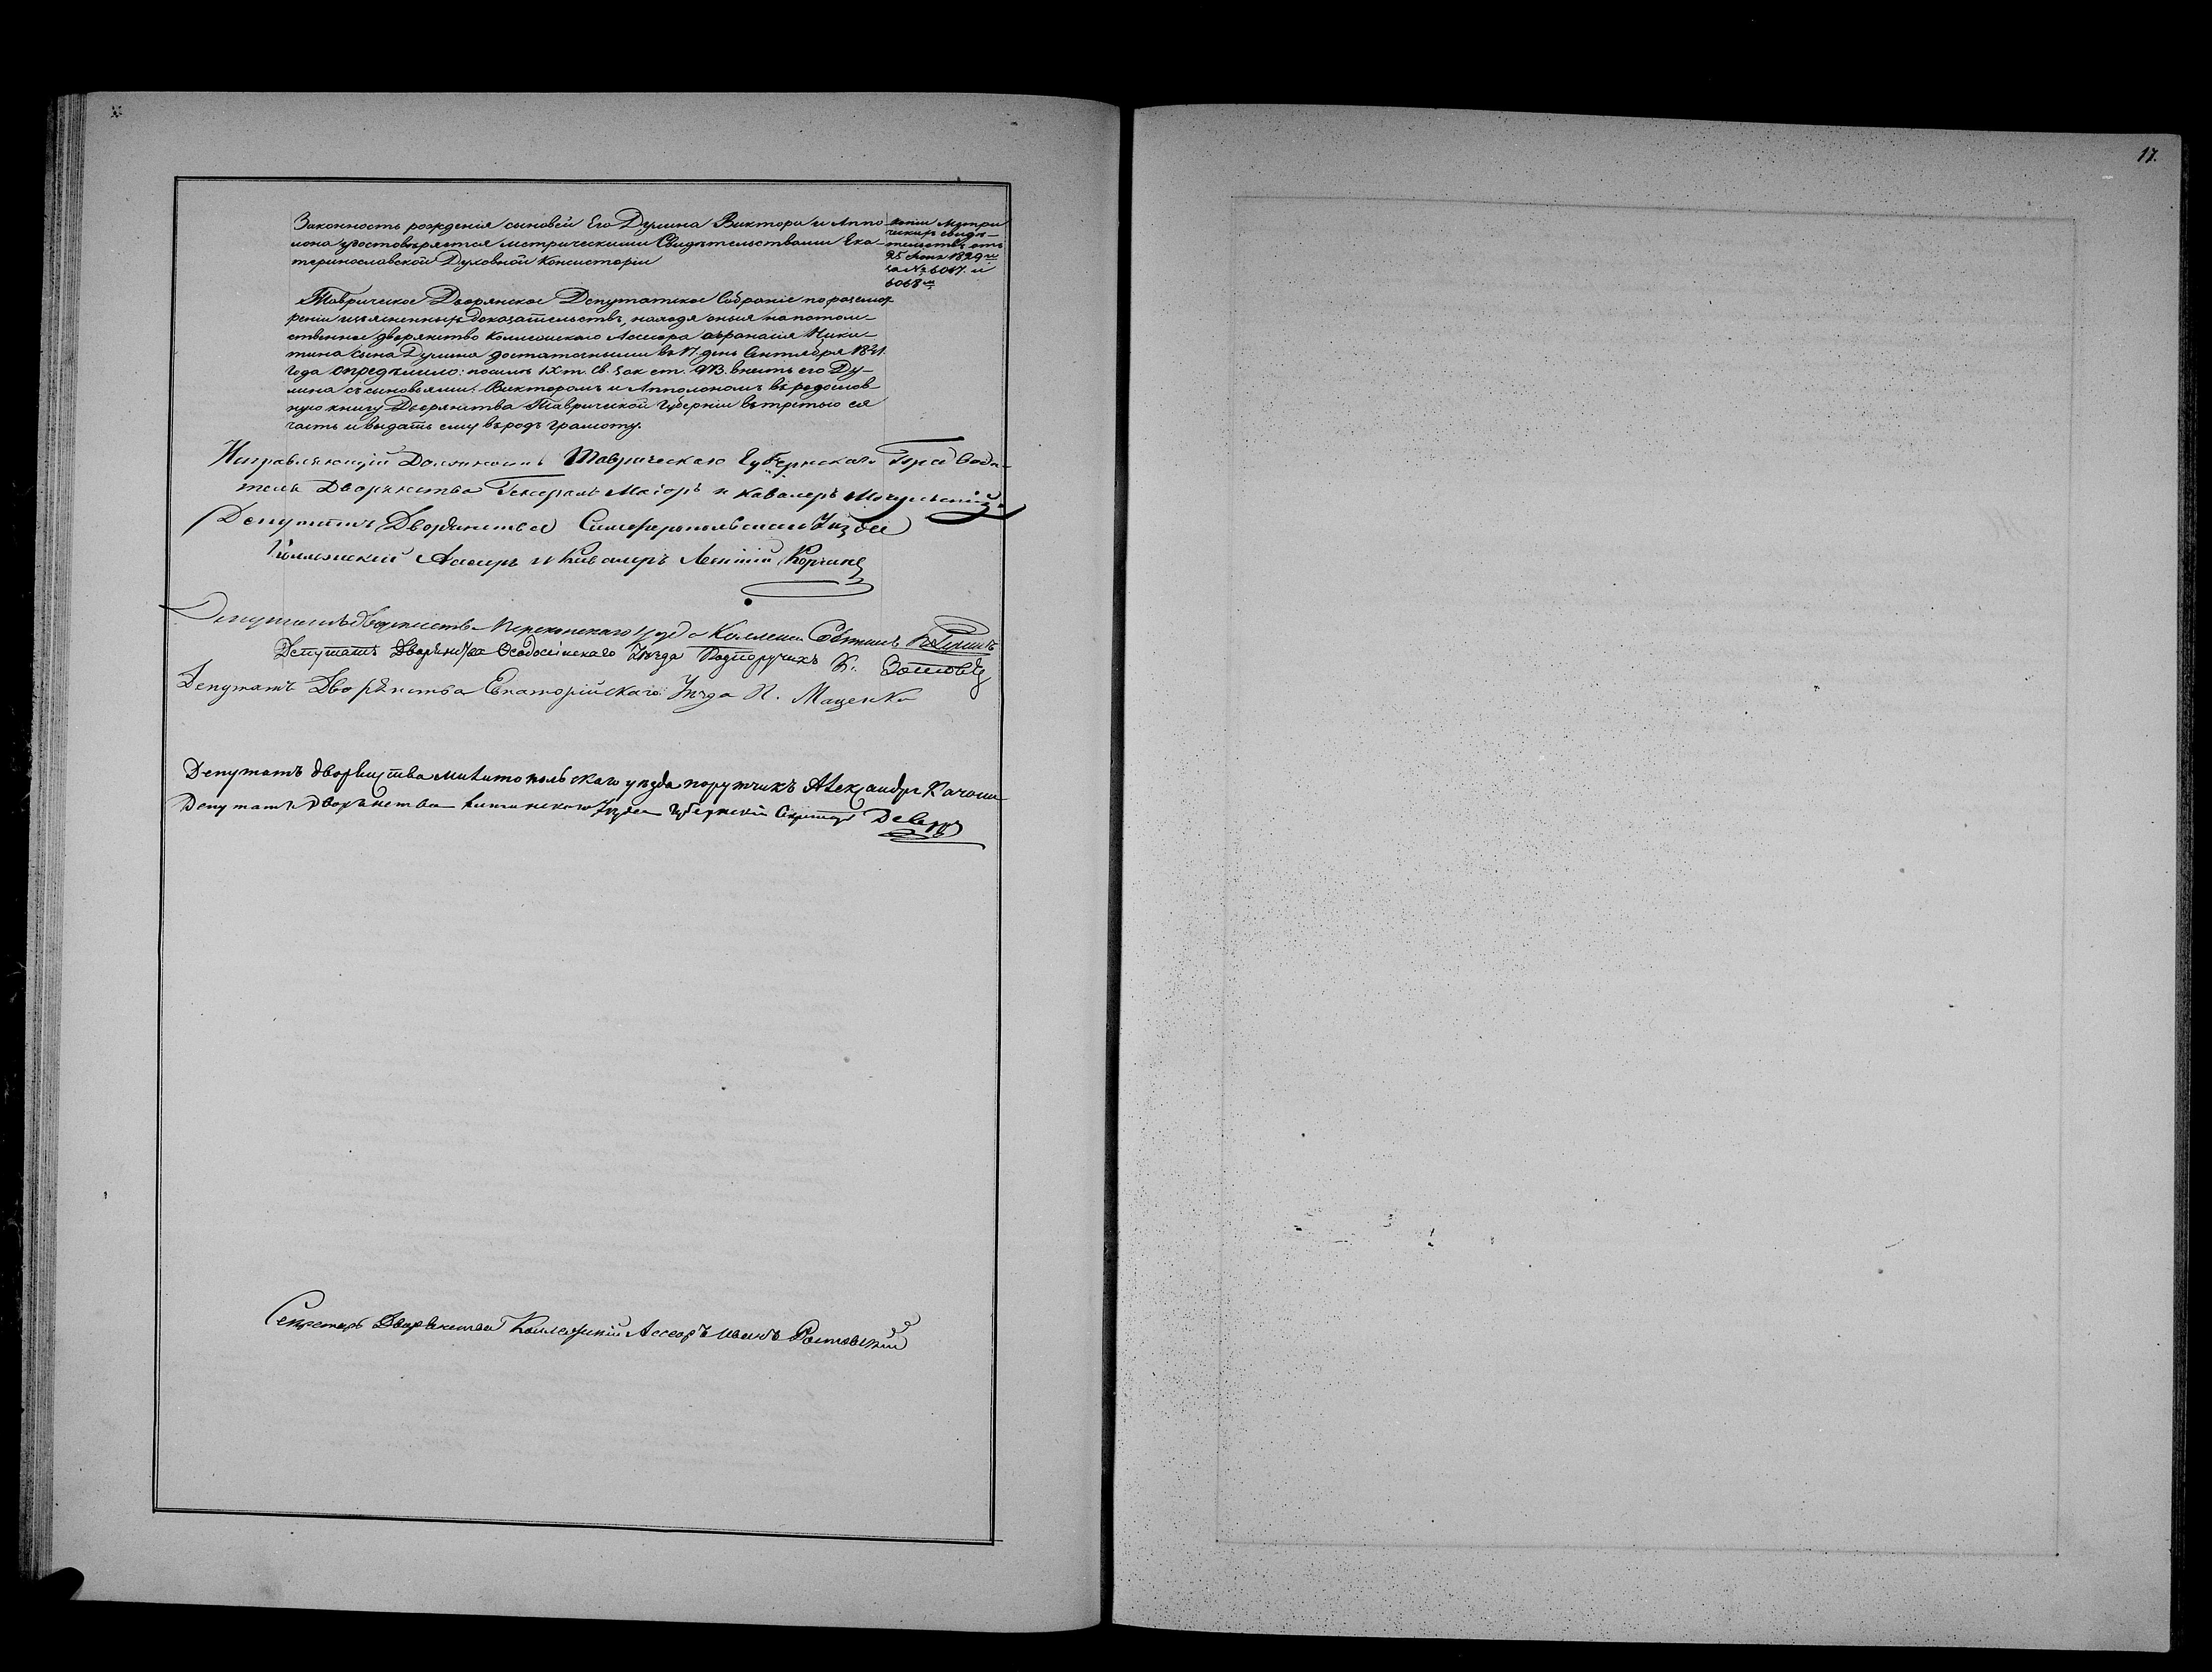 17.
Законность рожденія сыновей Его Думина Виктора и Аппо-
лона удостовѣряется метрическими Свидѣтельствами Ека-
теринославской Духовной Консисторіи
копіи Метри
ческихъ свидѣ-
тельствъ отъ
25 1829 го
за № 6047. и
6068 м
Таврическое Дворянское Депутатское Собраніе по разсмот-
реніи изъясненныхъ доказательствъ, находя оныя на потом-
ственное дворянство Коллежскаго Ассесора Афанасія Ники-
тина сына Думина достаточными въ 17 день Сентября 1841.
года опредѣлило: посилѣ IX т. Св. Зак ст. внесть его Ду-
мина съ сыновьями: Викторомъ и Апполономъ въ родослов-
ную книгу Дворянства Таврической Губерніи въ третью ея
часть и выдать ему въ родъ грамоту.
Исправляющій Должность Таврическаго Губернскаго Предводи-
теля Дворянства Генералъ Маіоръ и Кавалеръ
Депутатъ Дворянства Симферопольскаго Уѣзда
Коллежскій Ассесоръ и Кавалеръ
Депутатъ дворянства Перекопскаго уѣзда Коллеж. Совѣтникъ
Депутатъ Дворянства Ѳеодосійскаго Уѣзда Подпоручикъ К. Зотовъ
Депутатъ Дворянства Евпаторійскаго Уѣзда П. Маценко
Депутатъ дворянства мелитопольскаго уѣзда поручикъ Александръ Качони
Депутатъ дворянства Уѣзда Губернскій Секретарь
Секретарь Дворянства Коллежскій Ассесоръ Иванъ Ростовскій